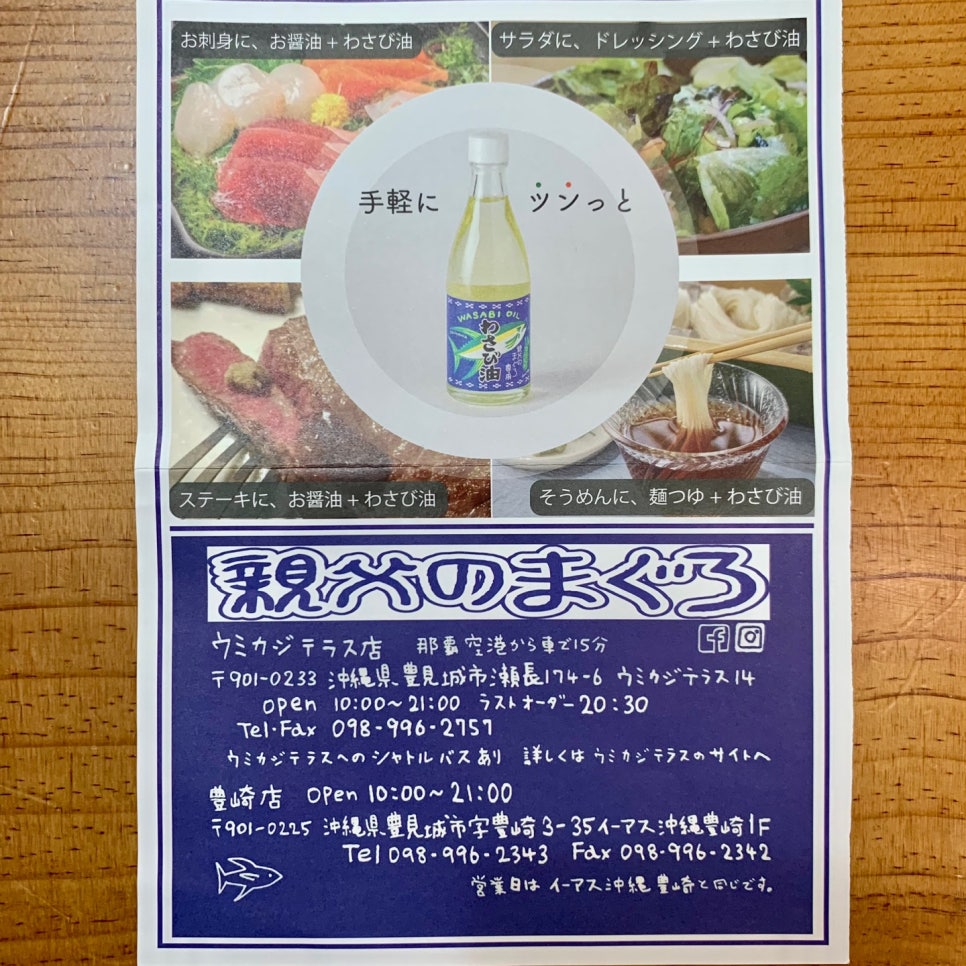 お刺身に、お醤油+わさび油
サラダに、ドレッシング+わさび油
手軽に ツンっと
WASABI OIL
わさび油
ステーキに、お醤油+わさび油
そうめんに、麺つゆ+わさび油
親父のまぐろ
ウミカジテラス店 那覇空港から車で15分
〒901-0233 沖縄県豊見城市瀬長174-6 ウミカジテラス14
open 10:00~21:00 ラストオーダー20:30
Tel・Fax 098-996-2757
ウミカジテラスへのシャトルバスあり 詳しくはウミカジテラスのサイトへ
豊崎店 open 10:00~21:00
〒901-0225 沖縄県豊見城市字豊崎3-35イーアス沖縄豊崎1F
Tel 098-996-2343 Fax 098-996-2342
営業日はイーアス沖縄豊崎と同じです。